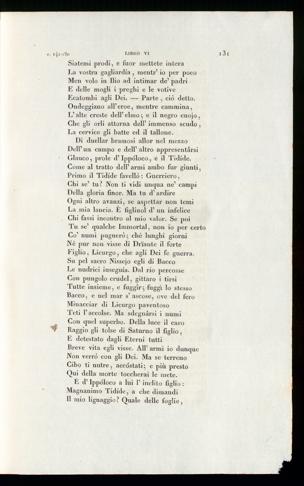 v. 141-180 LIBRO VI 131
Siatemi prodi, e fuor mettete intera
La vostra gagliardia, mentr' io per poco
Men volo in Ilio ad intimar de' padri
E delle mogli i preghi e le votive
Ecatombi agli Dei. — Parte, ciò detto.
Ondeggiano all' eroe, mentre cammina,
L' alte creste dell' elmo; e il negro cuojo,
Che gli orli attorna dell' immenso scudo,
La cervice gli batte ed il tallone.
Di duellar bramosi allor nel mezzo
Dell' un campo e dell' altro appresentârsi
Glauco, prole d' Ippóloco, e il Tidíde.
Come al tratto dell' armi ambo fur giunti,
Primo il Tidíde favellò: Guerriero,
Chi se' tu? Non ti vidi unqua ne' campi
Della gloria finor. Ma tu d' ardire
Ogni altro avanzi, se aspettar non temi
La mia lancia. È figliuol d' un infelice
Chi fassi incontro al mio valor. Se poi
Tu se' qualche Immortal, non io per certo
Co' numi pugnerò; chè lunghi giorni
Nè pur non visse di Driante il forte
Figlio, Licurgo, che agli Dei fe guerra.
Su pel sacro Nissejo egli di Bacco
Le nudrici inseguia. Dal rio percosse
Con pungolo crudel, gittaro i tirsi
Tutte insieme, e fuggîr; fuggì lo stesso
Bacco, e nel mar s' ascose, ove del fero
Minacciar di Licurgo paventoso
Teti l' accolse. Ma sdegnârsi i numi
Con quel superbo. Della luce il caro
Raggio gli tolse di Saturno il figlio,
E detestato dagli Eterni tutti
Breve vita egli visse. All' armi io dunque
Non verrò con gli Dei. Ma se terreno
Cibo ti nutre, accóstati; e più presto
Qui della morte toccherai le mete.
E d' Ippóloco a lui l' inclito figlio:
Magnanimo Tidíde, a che dimandi
Il mio lignaggio? Quale delle foglie,